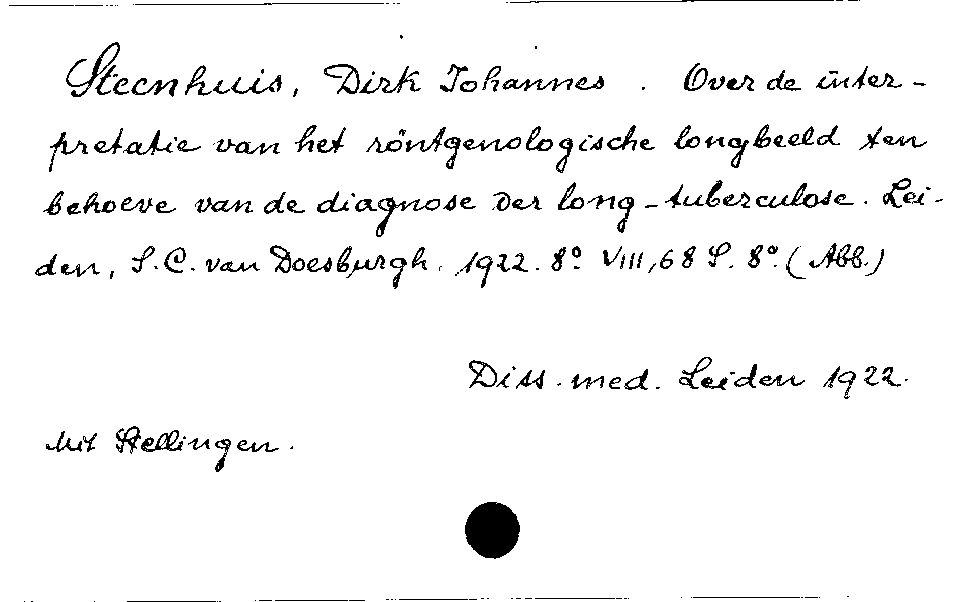 Steenhuis, Dirk Johannes. Over de inter-
pretatie van het röntgenologische longbeeld ten
behoeve van de diagnose der long-tuberculose. Lei-
den, S.C. van Doesburgh. 1922. 8° VIII, 68 S. 8°. (Abb.)
Diss. med. Leiden 1922.
Mit Stellingen.